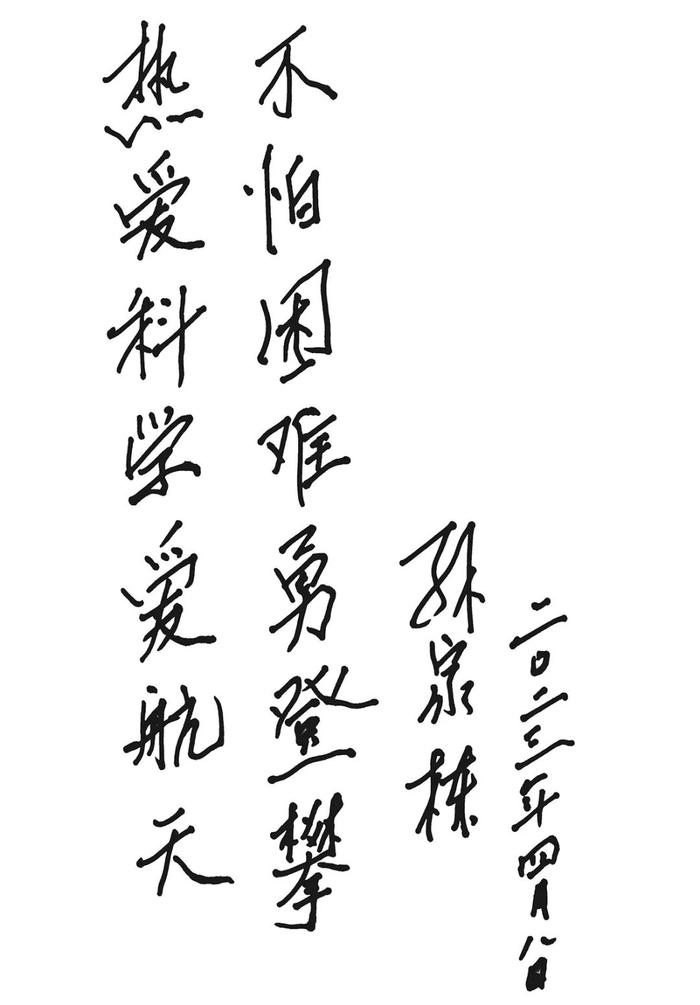 热爱科学爱航天
不怕困难勇登攀
孙家栋
二〇二三年四月八日